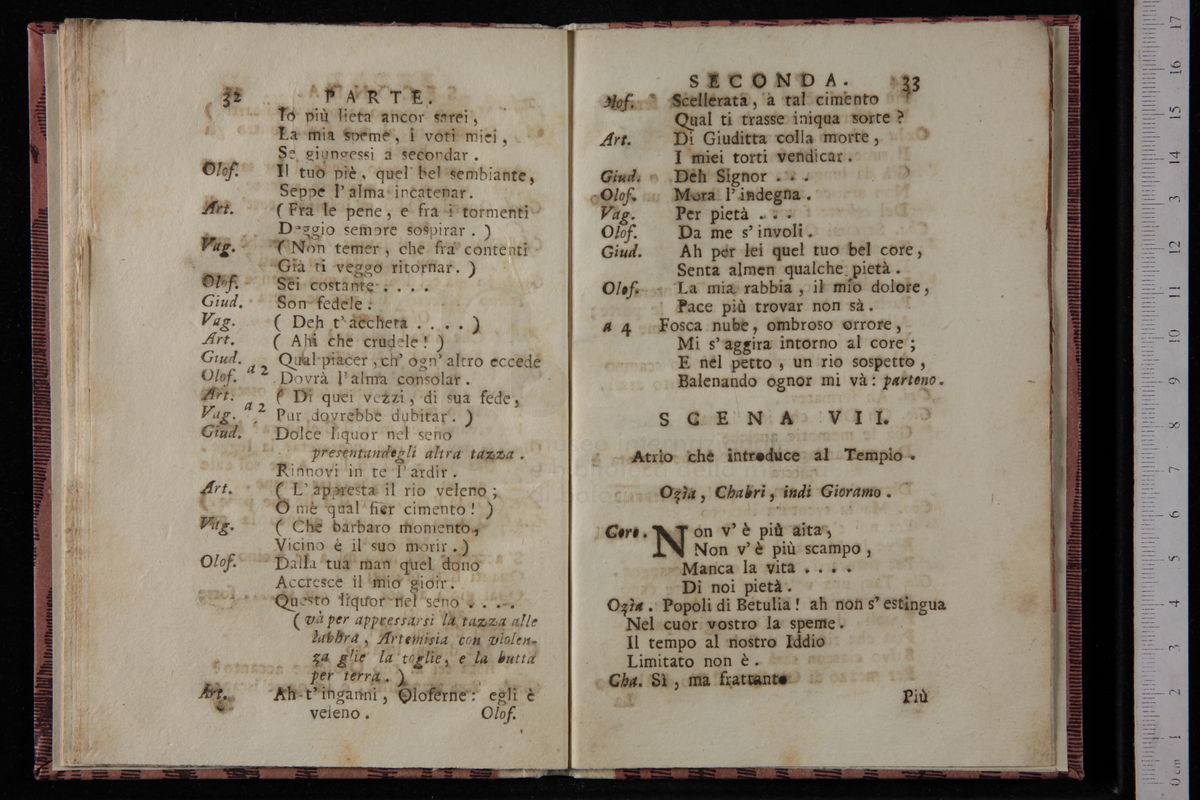 32 PARTE.
Io più lieta ancor sarei,
La mia speme, i voti miei,
Se giungessi a secondar.
Olof. Il tuo piè, quel bel sembiante,
Seppe l'alma incatenar.
Art. (Fra le pene, e fra i tormenti
Deggio sempre sospirar.)
Vag. (Non temer, che fra contenti
Già ti veggo ritornar.)
Olof. Sei costante....
Giud. Son fedele.
Vag. (Deh t'accheta....)
Art. (Ahi che crudele!)
Giud. Qual piacer, ch'ogn'altro eccede
Olof. a 2 Dovrà l'alma consolar.
Art. (Di quei vezzi, di sua fede,
Vag. a 2 Pur dovrebbe dubitar.)
Giud. Dolce liquor nel seno
presentandogli altra tazza.
Rinnovi in te l'ardir.
Art. (L'appresta il rio veleno;
O me qual fier cimento!)
Vag. (Che barbaro momento,
Vicino è il suo morir.)
Olof. Dalla tua man quel dono
Accresce il mio gioir.
Questo liquor nel seno....
(và per appressarsi la tazza alle
labbra, Artemisia con violen-
za glie la toglie, e la butta
per terra.)
Art. Ah t'inganni, Oloferne: egli è
veleno. Olof.
SECONDA. 33
Olof. Scellerata, a tal cimento
Qual ti trasse iniqua sorte?
Art. Di Giuditta colla morte,
I miei torti vendicar.
Giud. Deh Signor...
Olof. Mora l'indegna.
Vag. Per pietà...
Olof. Da me s'involi.
Giud. Ah per lei quel tuo bel core,
Senta almen qualche pietà.
Olof. La mia rabbia, il mio dolore,
Pace più trovar non sà.
a 4 Fosca nube, ombroso orrore,
Mi s'aggira intorno al core;
E nel petto, un rio sospetto,
Balenando ognor mi và: partono.
SCENA VII.
Atrio che introduce al Tempio.
Ozìa, Chabri, indi Gioramo.
Coro. Non v'è più aita,
Non v'è più scampo,
Manca la vita....
Di noi pietà.
Ozìa. Popoli di Betulia! ah non s'estingua
Nel cuor vostro la speme.
Il tempo al nostro Iddio
Limitato non è.
Cha. Sì, ma frattanto
Più
17
16
15
14
13
12
11
10
9
8
7
6
5
4
3
2
1
0 cm